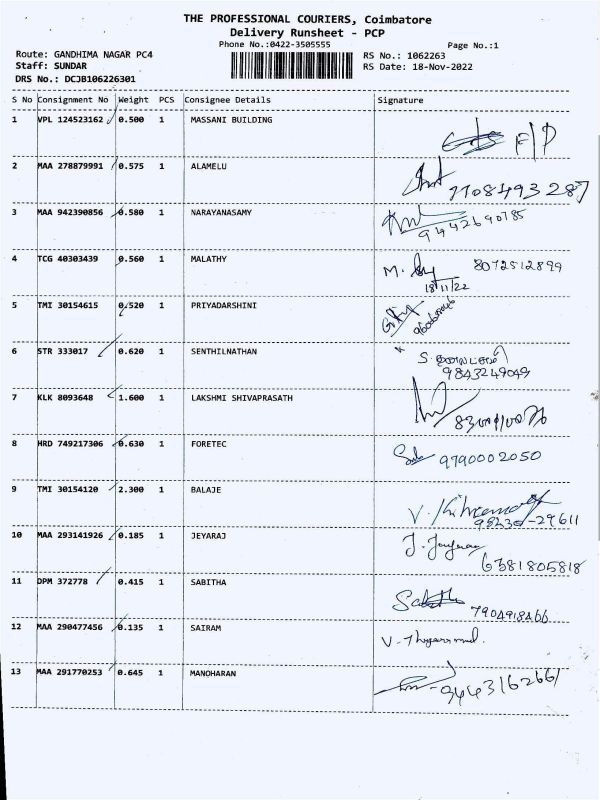 THE PROFESSIONAL COURIERS, Coimbatore
Delivery Runsheet - PCP
Phone No.:0422-3505555
Page No.:1
Route: GANDHIMA NAGAR PC4
RS No.: 1062263
Staff: SUNDAR
RS Date: 18-Nov-2022
DRS No.: DCJB106226301
S No Consignment No Weight PCS Consignee Details Signature
1 VPL 124523162 0.500 1 MASSANI BUILDING
F/P
2 MAA 278879991 0.575 1 ALAMELU
7708493287
3 MAA 942390856 0.580 1 NARAYANASAMY
9442690785
4 TCG 40303439 0.560 1 MALATHY
M. 8072512899
18/11/22
5 TMI 30154615 0.520 1 PRIYADARSHINI
6 STR 333017 0.620 1 SENTHILNATHAN
S.
9843249049
7 KLK 8093648 1.600 1 LAKSHMI SHIVAPRASATH
8 HRD 749217306 0.630 1 FORETEC
9790002050
9 TMI 30154120 2.300 1 BALAJE
V.
98230-29611
10 MAA 293141926 0.185 1 JEYARAJ
J.
6381805818
11 DPM 372778 0.415 1 SABITHA
7904918466
12 MAA 290477456 0.135 1 SAIRAM
V.
13 MAA 291770253 0.645 1 MANOHARAN
9443162661